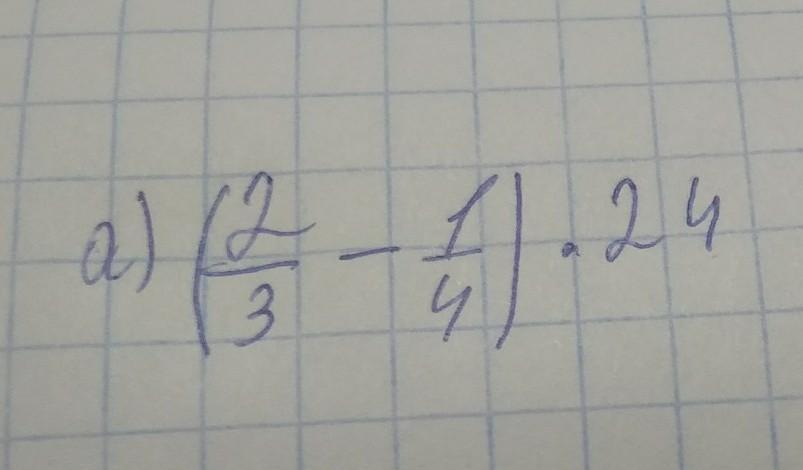 а) (2/3 - 1/4) · 24